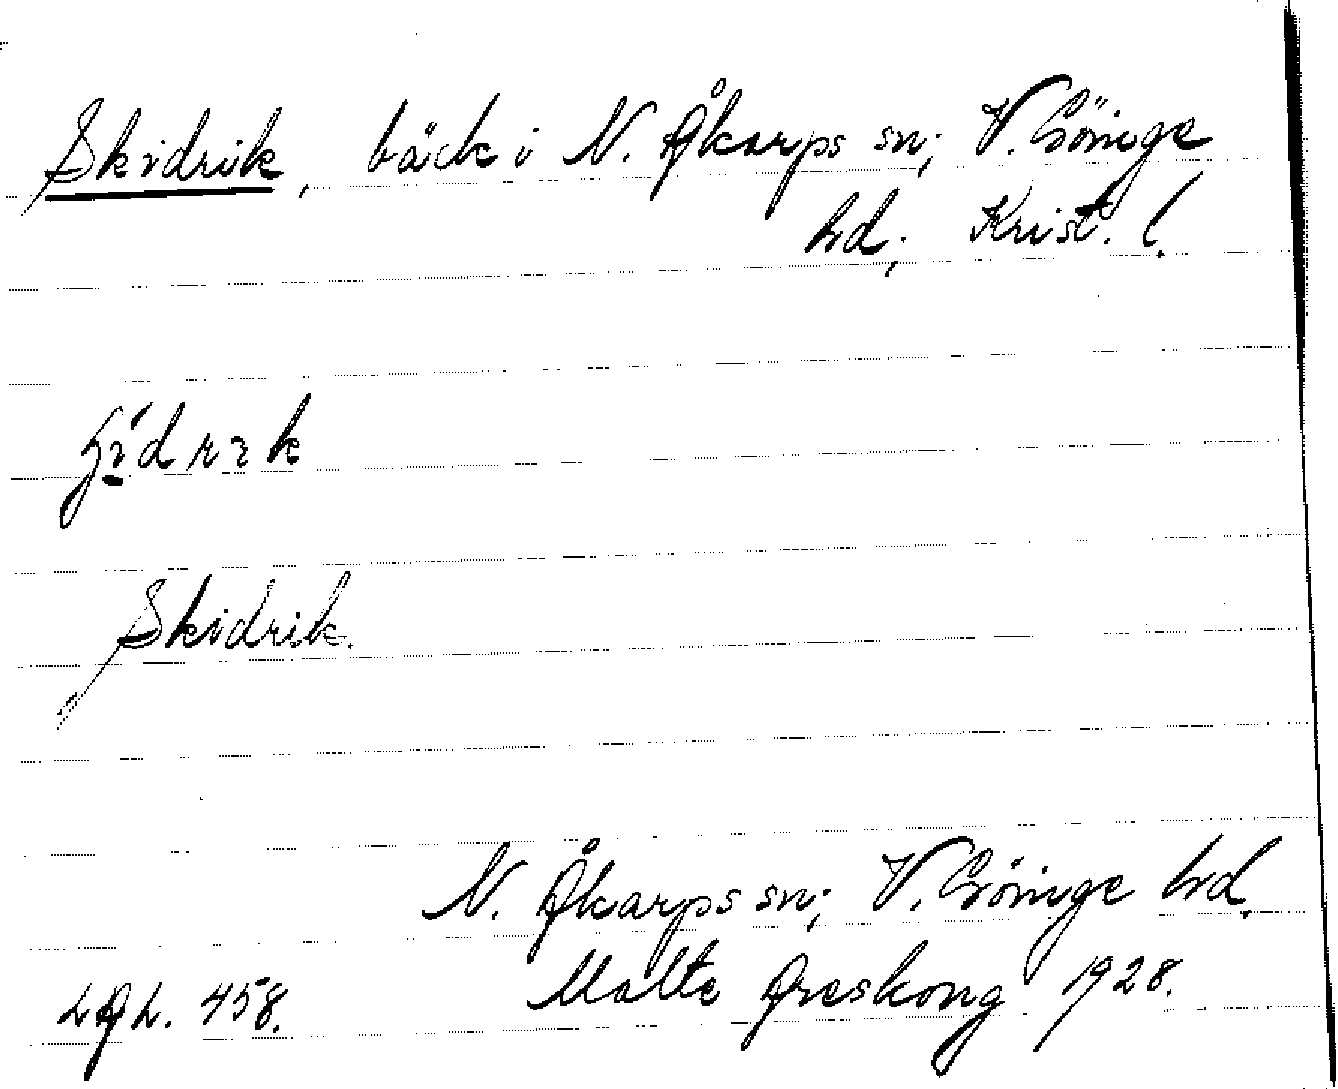 Skidrik, bäck i N. Åkarps sn; V. Göinge
hd; Krist. l.
Skidrik.
N. Åkarps sn; V. Göinge hd.
458. Malte Areskong 1928.